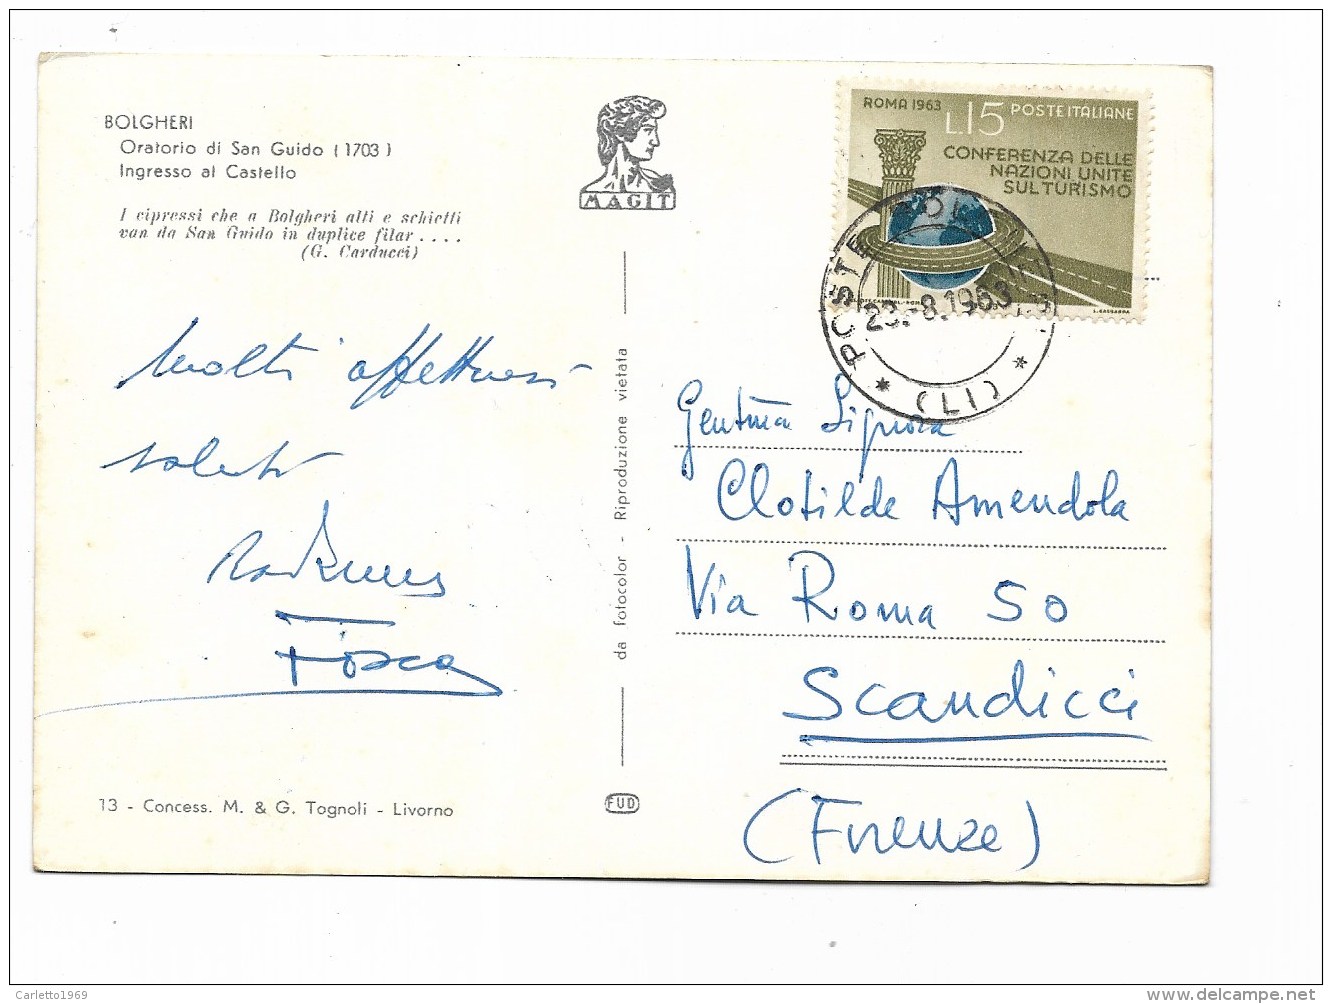 BOLGHERI
Oratorio di San Guido (1703)
Ingresso al Castello
I cipressi che a Bolgheri alti e schietti
van da San Guido in duplice filar ....
(G. Carducci)
MAGIT
ROMA 1963
L.15 POSTE ITALIANE
CONFERENZA DELLE
NAZIONI UNITE
SUL TURISMO
POSTE
23.-8.1963
* (LI) *
Molti affettuosi
saluti
Fosca
da fotocolor - Riproduzione vietata
Gent.ma Signora
Clotilde Amendola
Via Roma 50
Scandicci
(Firenze)
13 - Concess. M. & G. Tognoli - Livorno
FUD
Carletto1969
delcampe.net